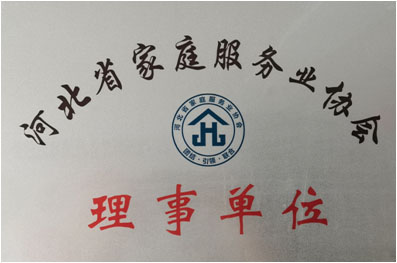 河北省家庭服务业协会
河北省家庭服务业协会
团结·引领·联合
理事单位